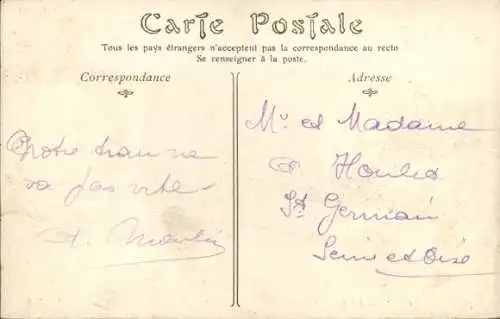 Carte Postale
Tous les pays étrangers n'acceptent pas la correspondance au recto
Se renseigner à la poste.
Correspondance
Adresse
Notre train ne
va pas vite
Mr et Madame
St Germain
Seine et Oise